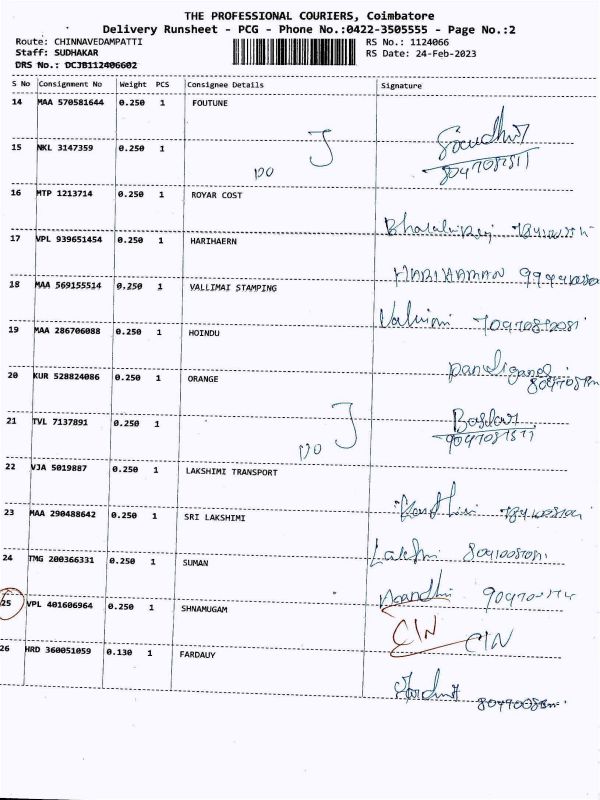 THE PROFESSIONAL COURIERS, Coimbatore
Delivery Runsheet - PCG - Phone No.:0422-3505555 - Page No.:2
Route: CHINNAVEDAMPATTI RS No.: 1124066
Staff: SUDHAKAR RS Date: 24-Feb-2023
DRS No.: DCJB112406602
S No Consignment No Weight PCS Consignee Details Signature
14 MAA 570581644 0.250 1 FOUTUNE
15 NKL 3147359 0.250 1 DO
16 MTP 1213714 0.250 1 ROYAR COST
17 VPL 939651454 0.250 1 HARIHAERN
18 MAA 569155514 0.250 1 VALLIMAI STAMPING
19 MAA 286706088 0.250 1 HOINDU
20 KUR 528824086 0.250 1 ORANGE
21 TVL 7137891 0.250 1 DO
22 VJA 5019887 0.250 1 LAKSHIMI TRANSPORT
23 MAA 290488642 0.250 1 SRI LAKSHIMI
24 TMG 200366331 0.250 1 SUMAN
25 VPL 401606964 0.250 1 SHNAMUGAM CIN CIN
26 HRD 360051059 0.130 1 FARDAUY